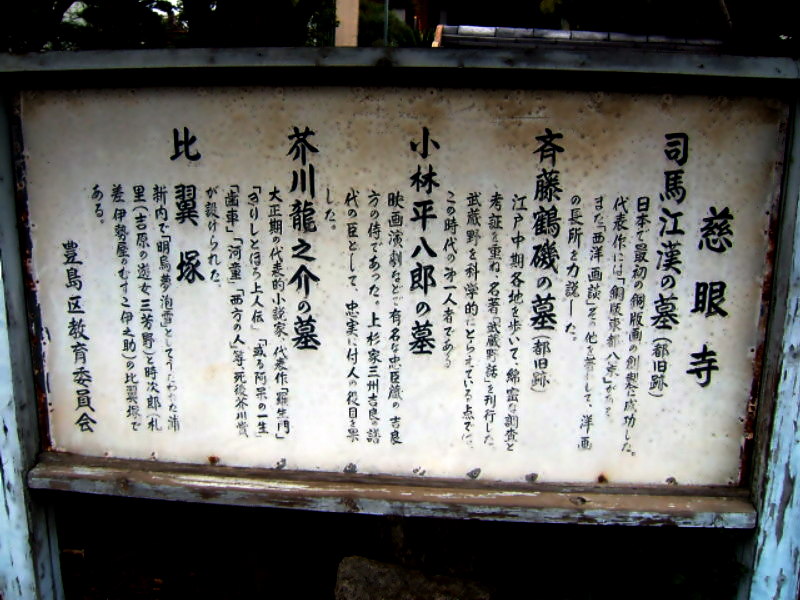 慈眼寺
司馬江漢の墓（都旧跡）
日本で最初の銅版画の創製に成功した。
代表作には「銅版東都八景」がある
また「西洋画談」その他を著して、洋画
の長所を力説した。
斉藤鶴磯の墓（都旧跡）
江戸中期各地を歩いて、綿密な調査と
考証を重ね、名著「武蔵野話」を刊行した。
武蔵野を科学的にとらえている点では、
この時代の第一人者である
小林平八郎の墓
映画演劇などで有名な忠臣蔵の吉良
方の侍であった。上杉家三州吉良の譜
代の臣として、忠実に付人の役目を果
した。
芥川龍之介の墓
大正期の代表的小説家、代表作「羅生門」
「きりしとほろ上人伝」「或る阿呆の一生」
「歯車」「河童」「西方の人」等、死後芥川賞
が設けられた。
比翼塚
新内で「明烏夢泡雪」としてうたわれた浦
里（吉原の遊女三芳野）と時次郎（札
差伊勢屋のむすこ伊之助）の比翼塚で
ある。
豊島区教育委員会